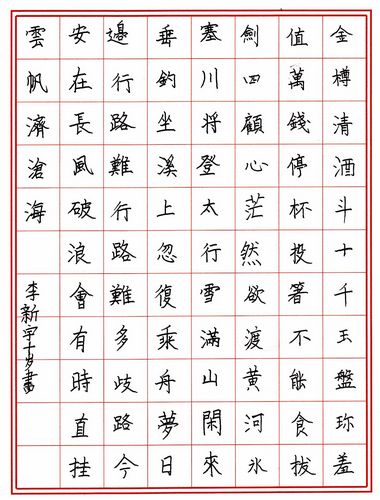 金樽清酒斗十千玉盤珎羞
值萬錢停杯投箸不能食拔
劍四顧心茫然欲渡黃河氷
塞川將登太行雪滿山閑來
垂釣坐溪上忽復乘舟夢日
邊行路難行路難多歧路今
安在長風破浪會有時直挂
雲帆濟滄海
李新宇十岁書